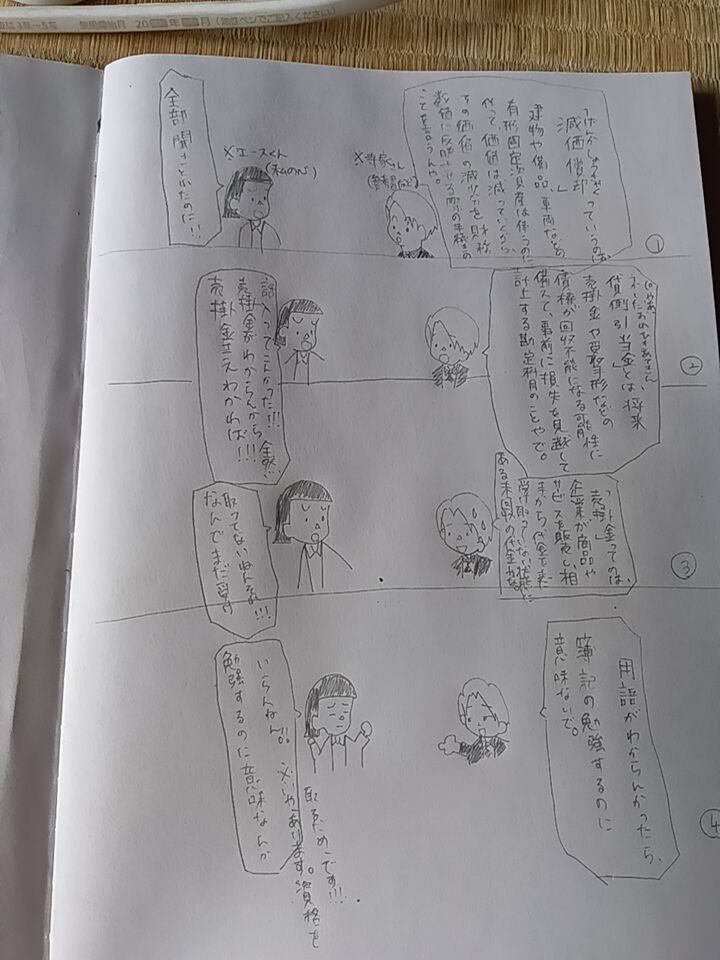 使用開始月 20 年 月 (油性ペンでご記入ください)
①
「減価償却」っていうのは、
げんかしょうきゃく
建物や備品、車両などの
有形固定資産は使うのに
従って、価値は減っていくから、
その価値の減少分を財務
数値に反映させる際の手続きの
ことを言うんや。
※エースくん
(私の心)
全部聞きことれたのに!!
②
じゃあ、
かしだおれひきあてきん
「貸倒引当金」とは、将来
売掛金や受取手形などの
債権が回収不能になる可能性に
備えて、事前に損失を見越して
計上する勘定科目のことやで。
話入ってこんかった!!!
売掛金がわからんから全然!!
売掛金さえわかれば!!!
③
「売掛金」ってのは、
企業が商品や
サービスを販売し、相
手から代金を未だ
受け取っていない状態に
ある未回収の代金やな。
なんでまだ受け
取ってないねんそれ!!!
④
用語がわからんかったら、
簿記の勉強するのに
意味ないで。
勉強するのに意味なんか
いらんねん!!
※いやあります。資格を
取るためです!!!